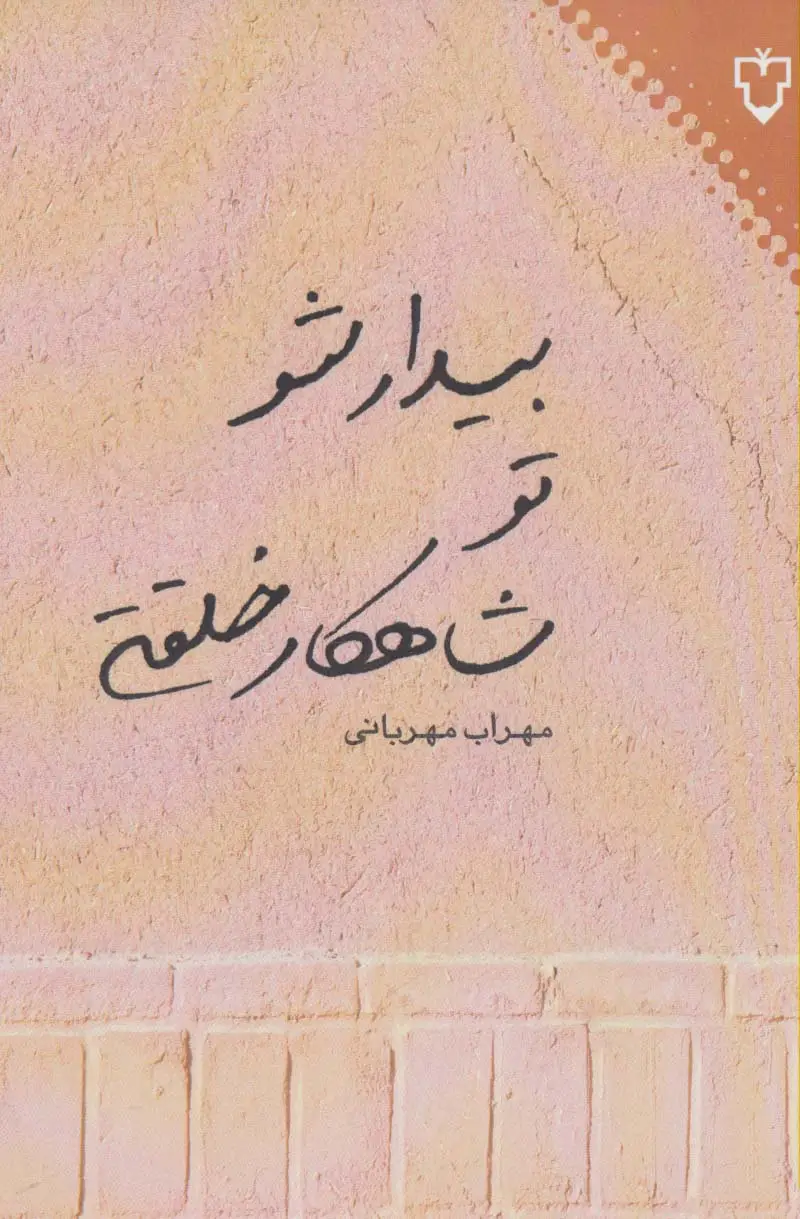 بیدار شو
تو
شاهکار خلقتی
مهراب مهربانی